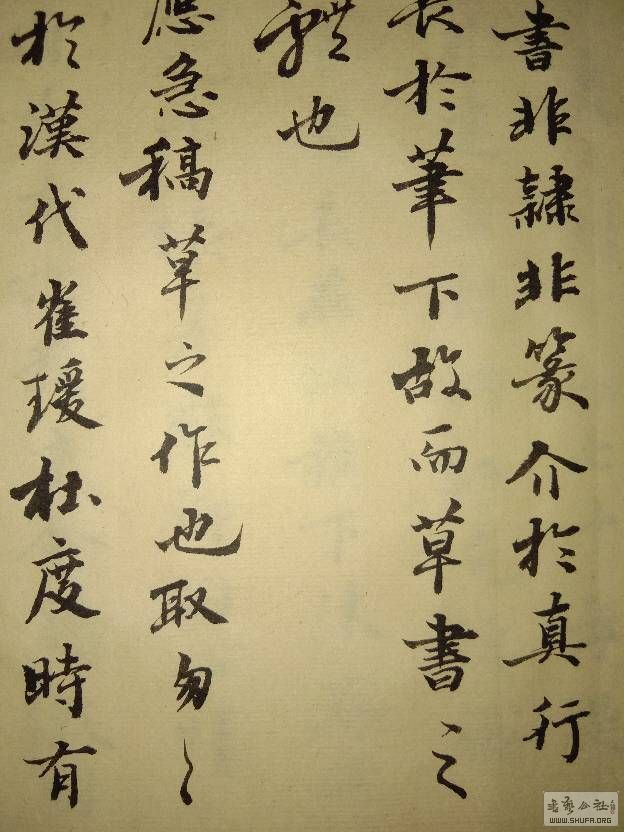 書非隸非篆介於真行
長於筆下故而草書之
體也
應急稿草之作也取匆〻
於漢代崔瑗杜度時有
書藝公社
WWW.SHUFA.ORG